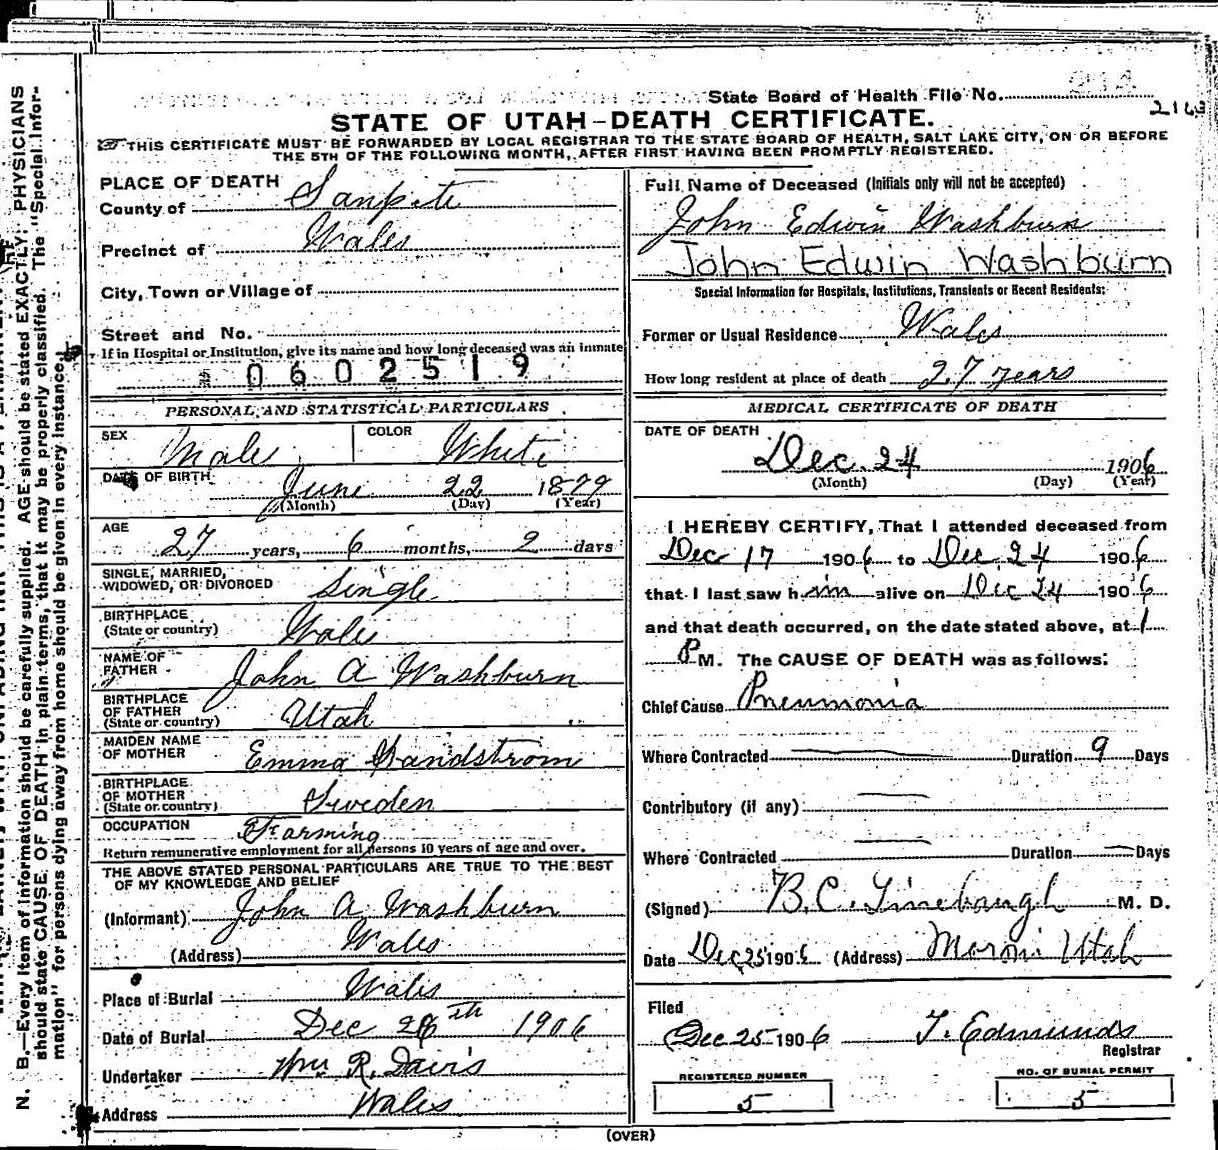 State Board of Health File No.
2163
STATE OF UTAH-DEATH CERTIFICATE.
THIS CERTIFICATE MUST BE FORWARDED BY LOCAL REGISTRAR TO THE STATE BOARD OF HEALTH, SALT LAKE CITY, ON OR BEFORE
THE 5TH OF THE FOLLOWING MONTH, AFTER FIRST HAVING BEEN PROMPTLY REGISTERED.
PLACE OF DEATH
County of Sanpete
Precinct of Wales
City, Town or Village of
Street and No.
If in Hospital or Institution, give its name and how long deceased was an inmate
0602519
PERSONAL AND STATISTICAL PARTICULARS
SEX Male COLOR White
DATE OF BIRTH June 22 1879
(Month) (Day) (Year)
AGE
27 years, 6 months, 2 days
SINGLE, MARRIED,
WIDOWED, OR DIVORCED Single
BIRTHPLACE
(State or country) Wales
NAME OF
FATHER John A Washburn
BIRTHPLACE
OF FATHER
(State or country) Utah
MAIDEN NAME
OF MOTHER Emma Sandstrom
BIRTHPLACE
OF MOTHER
(State or country) Sweden
OCCUPATION Farming
Return remunerative employment for all persons 10 years of age and over.
THE ABOVE STATED PERSONAL PARTICULARS ARE TRUE TO THE BEST
OF MY KNOWLEDGE AND BELIEF
(Informant) John A Washburn
(Address) Wales
Place of Burial Wales
Date of Burial Dec 26th 1906
Undertaker Wm R. Davis
Address Wales
Full Name of Deceased (Initials only will not be accepted)
John Edwin Washburn
John Edwin Washburn
Special Information for Hospitals, Institutions, Transients or Recent Residents:
Former or Usual Residence Wales
How long resident at place of death 27 years
MEDICAL CERTIFICATE OF DEATH
DATE OF DEATH
Dec. 24 1906
(Month) (Day) (Year)
I HEREBY CERTIFY, That I attended deceased from
Dec 17 1906 to Dec. 24 1906
that I last saw him alive on Dec 24 1906
and that death occurred, on the date stated above, at 1
P M. The CAUSE OF DEATH was as follows:
Chief Cause Pneumonia
Where Contracted Duration 9 Days
Contributory (if any)
Where Contracted Duration Days
(Signed) B.C. Linebaugh M. D.
Date Dec 25 1906 (Address) Moroni Utah
Filed
Dec 25 1906 T. Edmunds
Registrar
REGISTERED NUMBER
5
NO. OF BURIAL PERMIT
5
(OVER)
N. B.—Every item of information should be carefully supplied. AGE should be stated EXACTLY; PHYSICIANS
should state CAUSE OF DEATH in plain terms, that it may be properly classified. The "Special Infor-
mation" for persons dying away from home should be given in every instance.